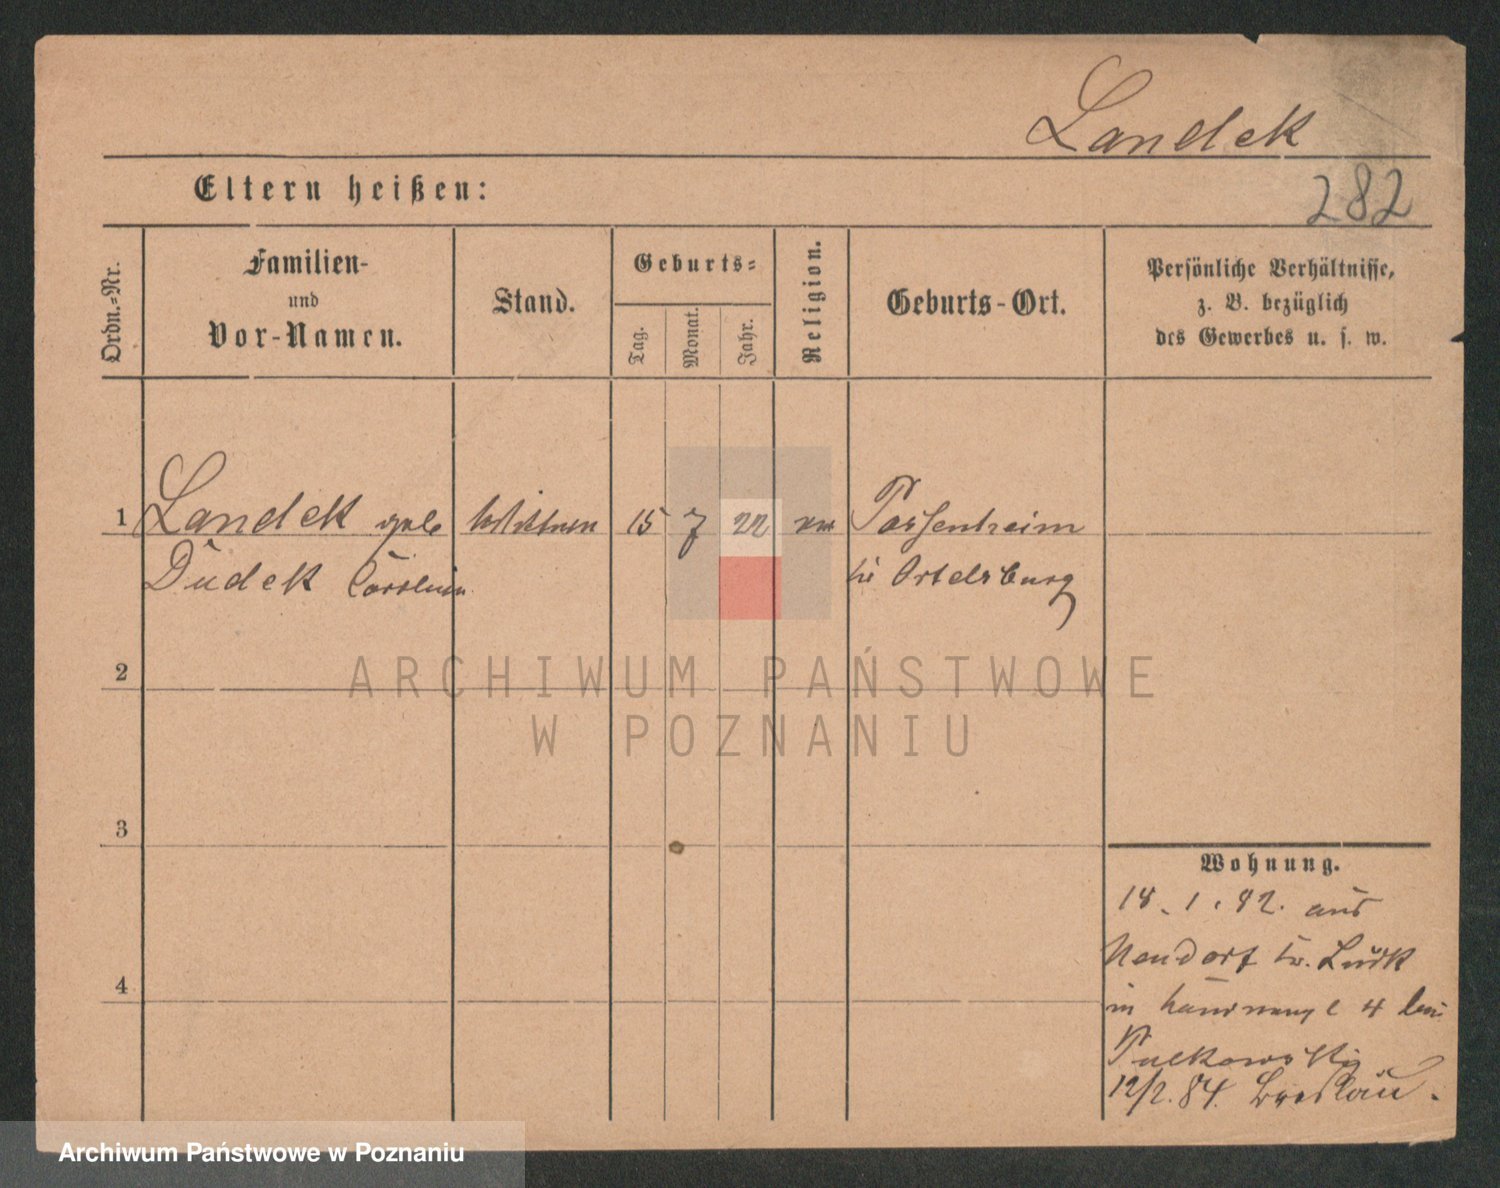 Landek
Eltern heißen:
282
Ordn.=Nr.
Familien-
und
Vor-Namen.
Stand.
Geburts=
Tag.
Monat.
Jahr.
Religion.
Geburts-Ort.
Persönliche Verhältnisse,
z. B. bezüglich
des Gewerbes u. s. w.
1 Landek geb 15 7 22 Passenheim
Dudek bei Ortelsburg
2
ARCHIWUM PAŃSTWOWE
W POZNANIU
3
Wohnung.
18. 1. 82. aus
Neudorf
4
in 4 bei
Pulkowski
12/2. 84. Breslau.
Archiwum Państwowe w Poznaniu